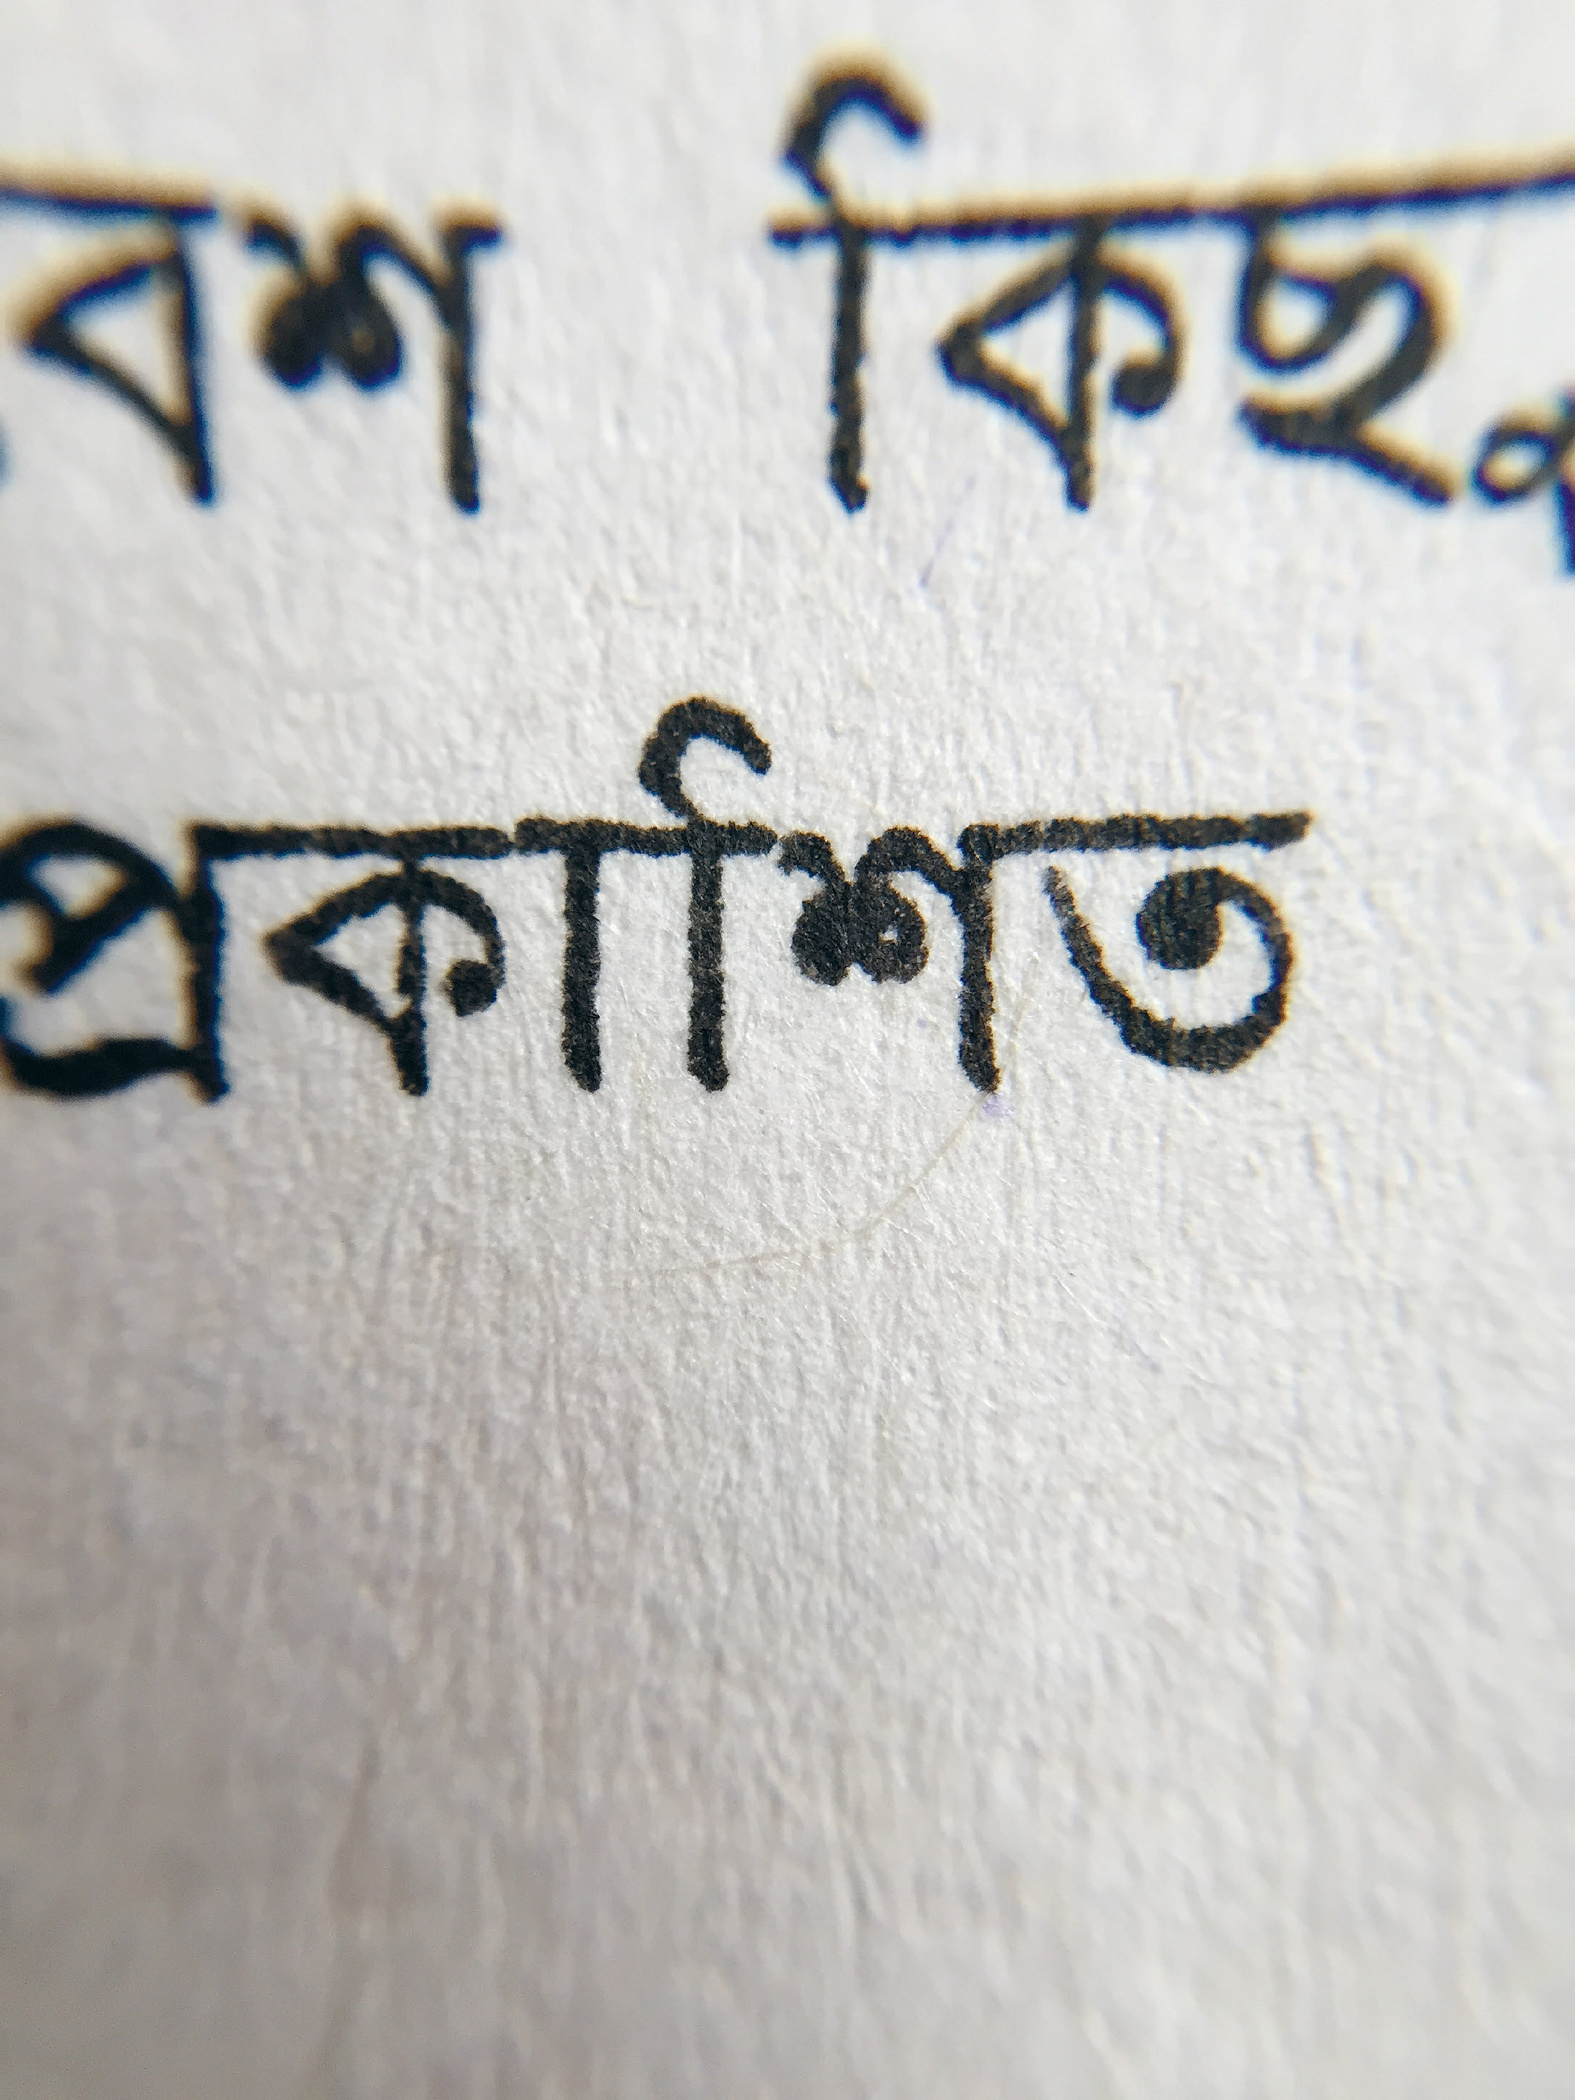 বেশ কিছু
প্রকাশিত